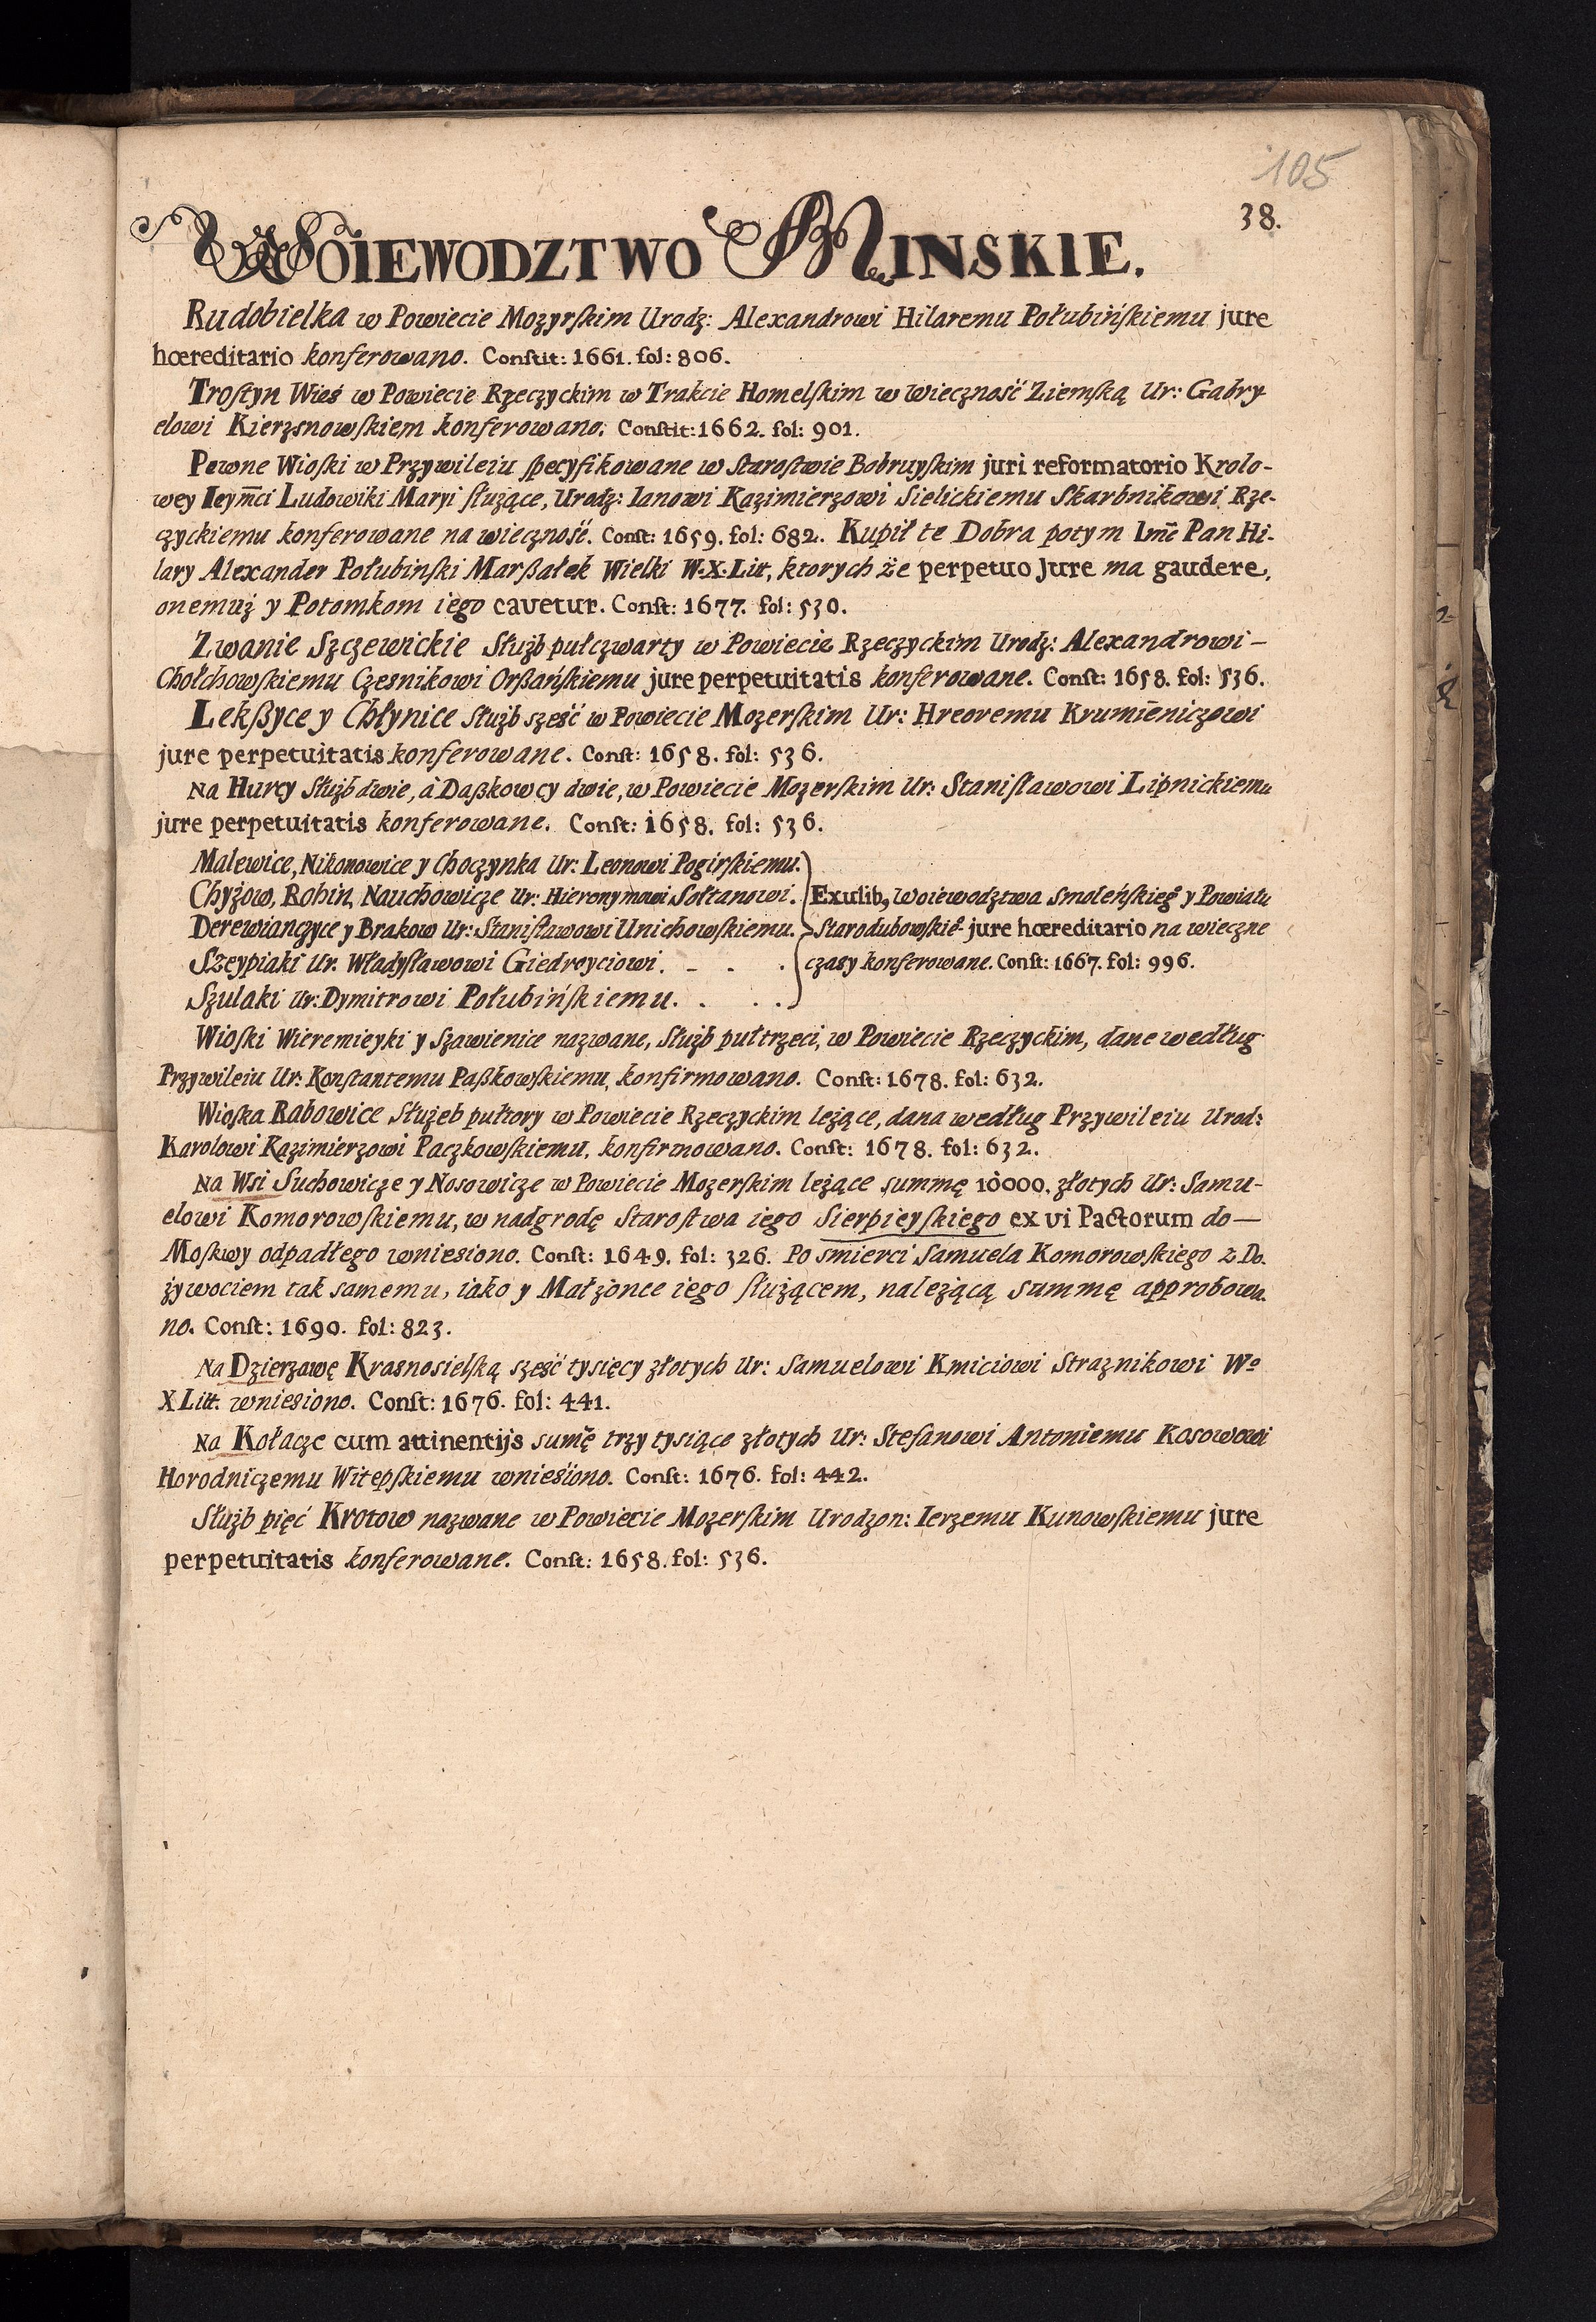 105
38.
WOIEWODZTWO MINSKIE.
Rudobielka w Powiecie Mozyrſkim Urodz: Alexandrowi Hilaremu Połubińſkiemu jure
hœreditario konferowano. Conſtit: 1661. fol: 806.
Troſtyn Wieś w Powiecie Rzeczyckim w Trakcie Homelſkim w Wieczność Ziemſką Ur: Gabry-
elowi Kierzsnowſkiem konferowano. Conſtit: 1662. fol: 901.
Pewne Wioſki w Przywileiu ſpecyfikowane w Staroſtwie Bobruyſkim juri reformatorio Krolo-
wey Ieym̃ci Ludowiki Maryi ſłużące, Urodz: Ianowi Kazimierzowi Sielickiemu Skarbnikowi Rze-
czyckiemu konferowane na wieczność. Conſt: 1659. fol: 682. Kupił te Dobra potym Im̃c Pan Hi-
lary Alexander Połubinſki Marßałek Wielki W.X.Litt, ktorych że perpetuo Jure ma gaudere,
onemuż y Potomkom iego cavetur. Conſt: 1677. fol: 530.
Zwanie Szczewickie Służb pułczwarty w Powiecie Rzeczyckim Urodz: Alexandrowi –
Chołchowſkiemu Czesnikowi Orßańſkiemu jure perpetuitatis konferowane. Conſt: 1658. fol: 536.
Lekßyce y Chłynice Służb sześć w Powiecie Mozerſkim Ur: Hreoremu Krumieniczowi
jure perpetuitatis konferowane. Conſt: 1658. fol: 536.
Na Hurcy Służb dwie, à Daßkowcy dwie, w Powiecie Mozerſkim Ur: Staniſławowi Lipnickiemu
jure perpetuitatis konferowane. Conſt: 1658. fol: 536.
Malewice, Nikonowice y Choczynka Ur: Leonowi Pogirſkiemu.
Chyżow, Robin, Nauchowicze Ur: Hieronymowi Sołtanowi. Exulib, Woiewodztwa Smoleńſkieg y Powiatu
Derewianczyce y Brakow Ur: Staniſławowi Unichowſkiemu. Starodubowſkieg jure hœreditario na wieczne
Szeypiaki Ur. Władyſławowi Giedroyciowi. - . . czasy konferowane. Conſt: 1667. fol: 996.
Szulaki Ur: Dymitrowi Połubińſkiemu. . . .
Wioſki Wieremieyki y Szawienice nazwane, Służb pułtrzeci, w Powiecie Rzeczyckim, dane według
Przywileiu Ur: Konſtantemu Paßkowſkiemu, konfirmowano. Conſt: 1678. fol: 632.
Wioſka Rabowice Służeb pułtory w Powiecie Rzeczyckim leżące, dana według Przywileiu Urod:
Karolowi Kazimierzowi Paczkowſkiemu, konfirmowano. Conſt: 1678. fol: 632.
Na Wsi Suchowicze y Nosowicze w Powiecie Mozerſkim leżące summę 10000. złotych Ur: Samu-
elowi Komorowſkiemu, w nadgrodę Staroſtwa iego Sierpieyſkiego ex vi Pactorum do —
Moſkwy odpadłego wniesiono. Conſt: 1649. fol: 326. Po śmierci Samuela Komorowſkiego z Do-
żywociem tak samemu, iako y Małżonce iego ſłużącem, należącą summę approbowa-
no. Conſt: 1690. fol: 823.
Na Dzierżawę Krasnosielſką sześć tysięcy złotych Ur: Samuelowi Kmiciowi Strażnikowi Wo
X Litt. wniesiono. Conſt: 1676. fol: 441.
Na Kołacze cum attinentijs sum̃ę trzy tysiące złotych Ur: Stefanowi Antoniemu Kosowowi
Horodniczemu Witepſkiemu wniesiono. Conſt: 1676. fol: 442.
Służb pięć Krotow nazwane w Powiecie Mozerſkim Urodzon: Ierzemu Kunowſkiemu jure
perpetuitatis konferowane. Conſt: 1658. fol: 536.